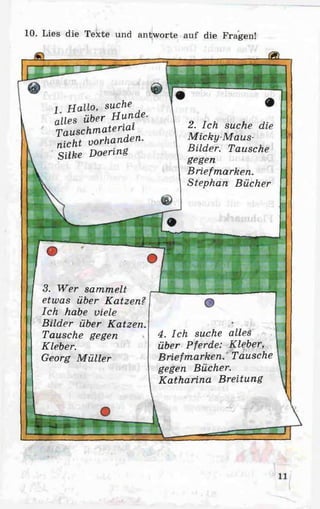 10. Lies die Texte und antworte auf die Fragen!
1. Hallo, suche
alles über Hunde.
Tauschmaterial
nicht vorhanden.
Silke Doering
2. Ich suche die
Micky-Maus-
Bilder. Tausche
gegen
Briefmarken.
Stephan Bücher
3. Wer sammelt
etwas über Katzen?
Ich habe viele
Bilder über Katzen.
Tausche gegen
Kleber.
Georg Müller
4. Ich suche alles
über Pferde: Kleber,
Briefmarken. Tausche
gegen Bücher.
Katharina Breitung
11